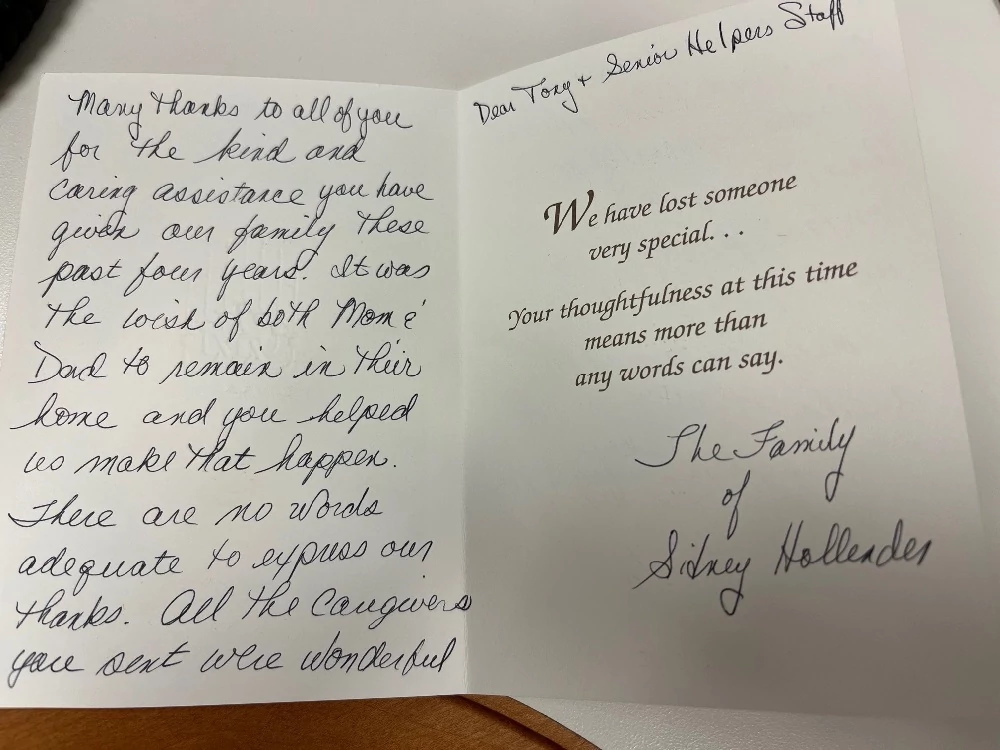 Dear Tony + Senior Helpers Staff
Many thanks to all of you
for the kind and
caring assistance you have
given our family these
past four years. It was
the wish of both Mom &
Dad to remain in their
home and you helped
us make that happen.
There are no words
adequate to express our
thanks. All the Caregivers
you sent were wonderful
We have lost someone
very special. . .
Your thoughtfulness at this time
means more than
any words can say.
The Family
of
Sidney Hollender